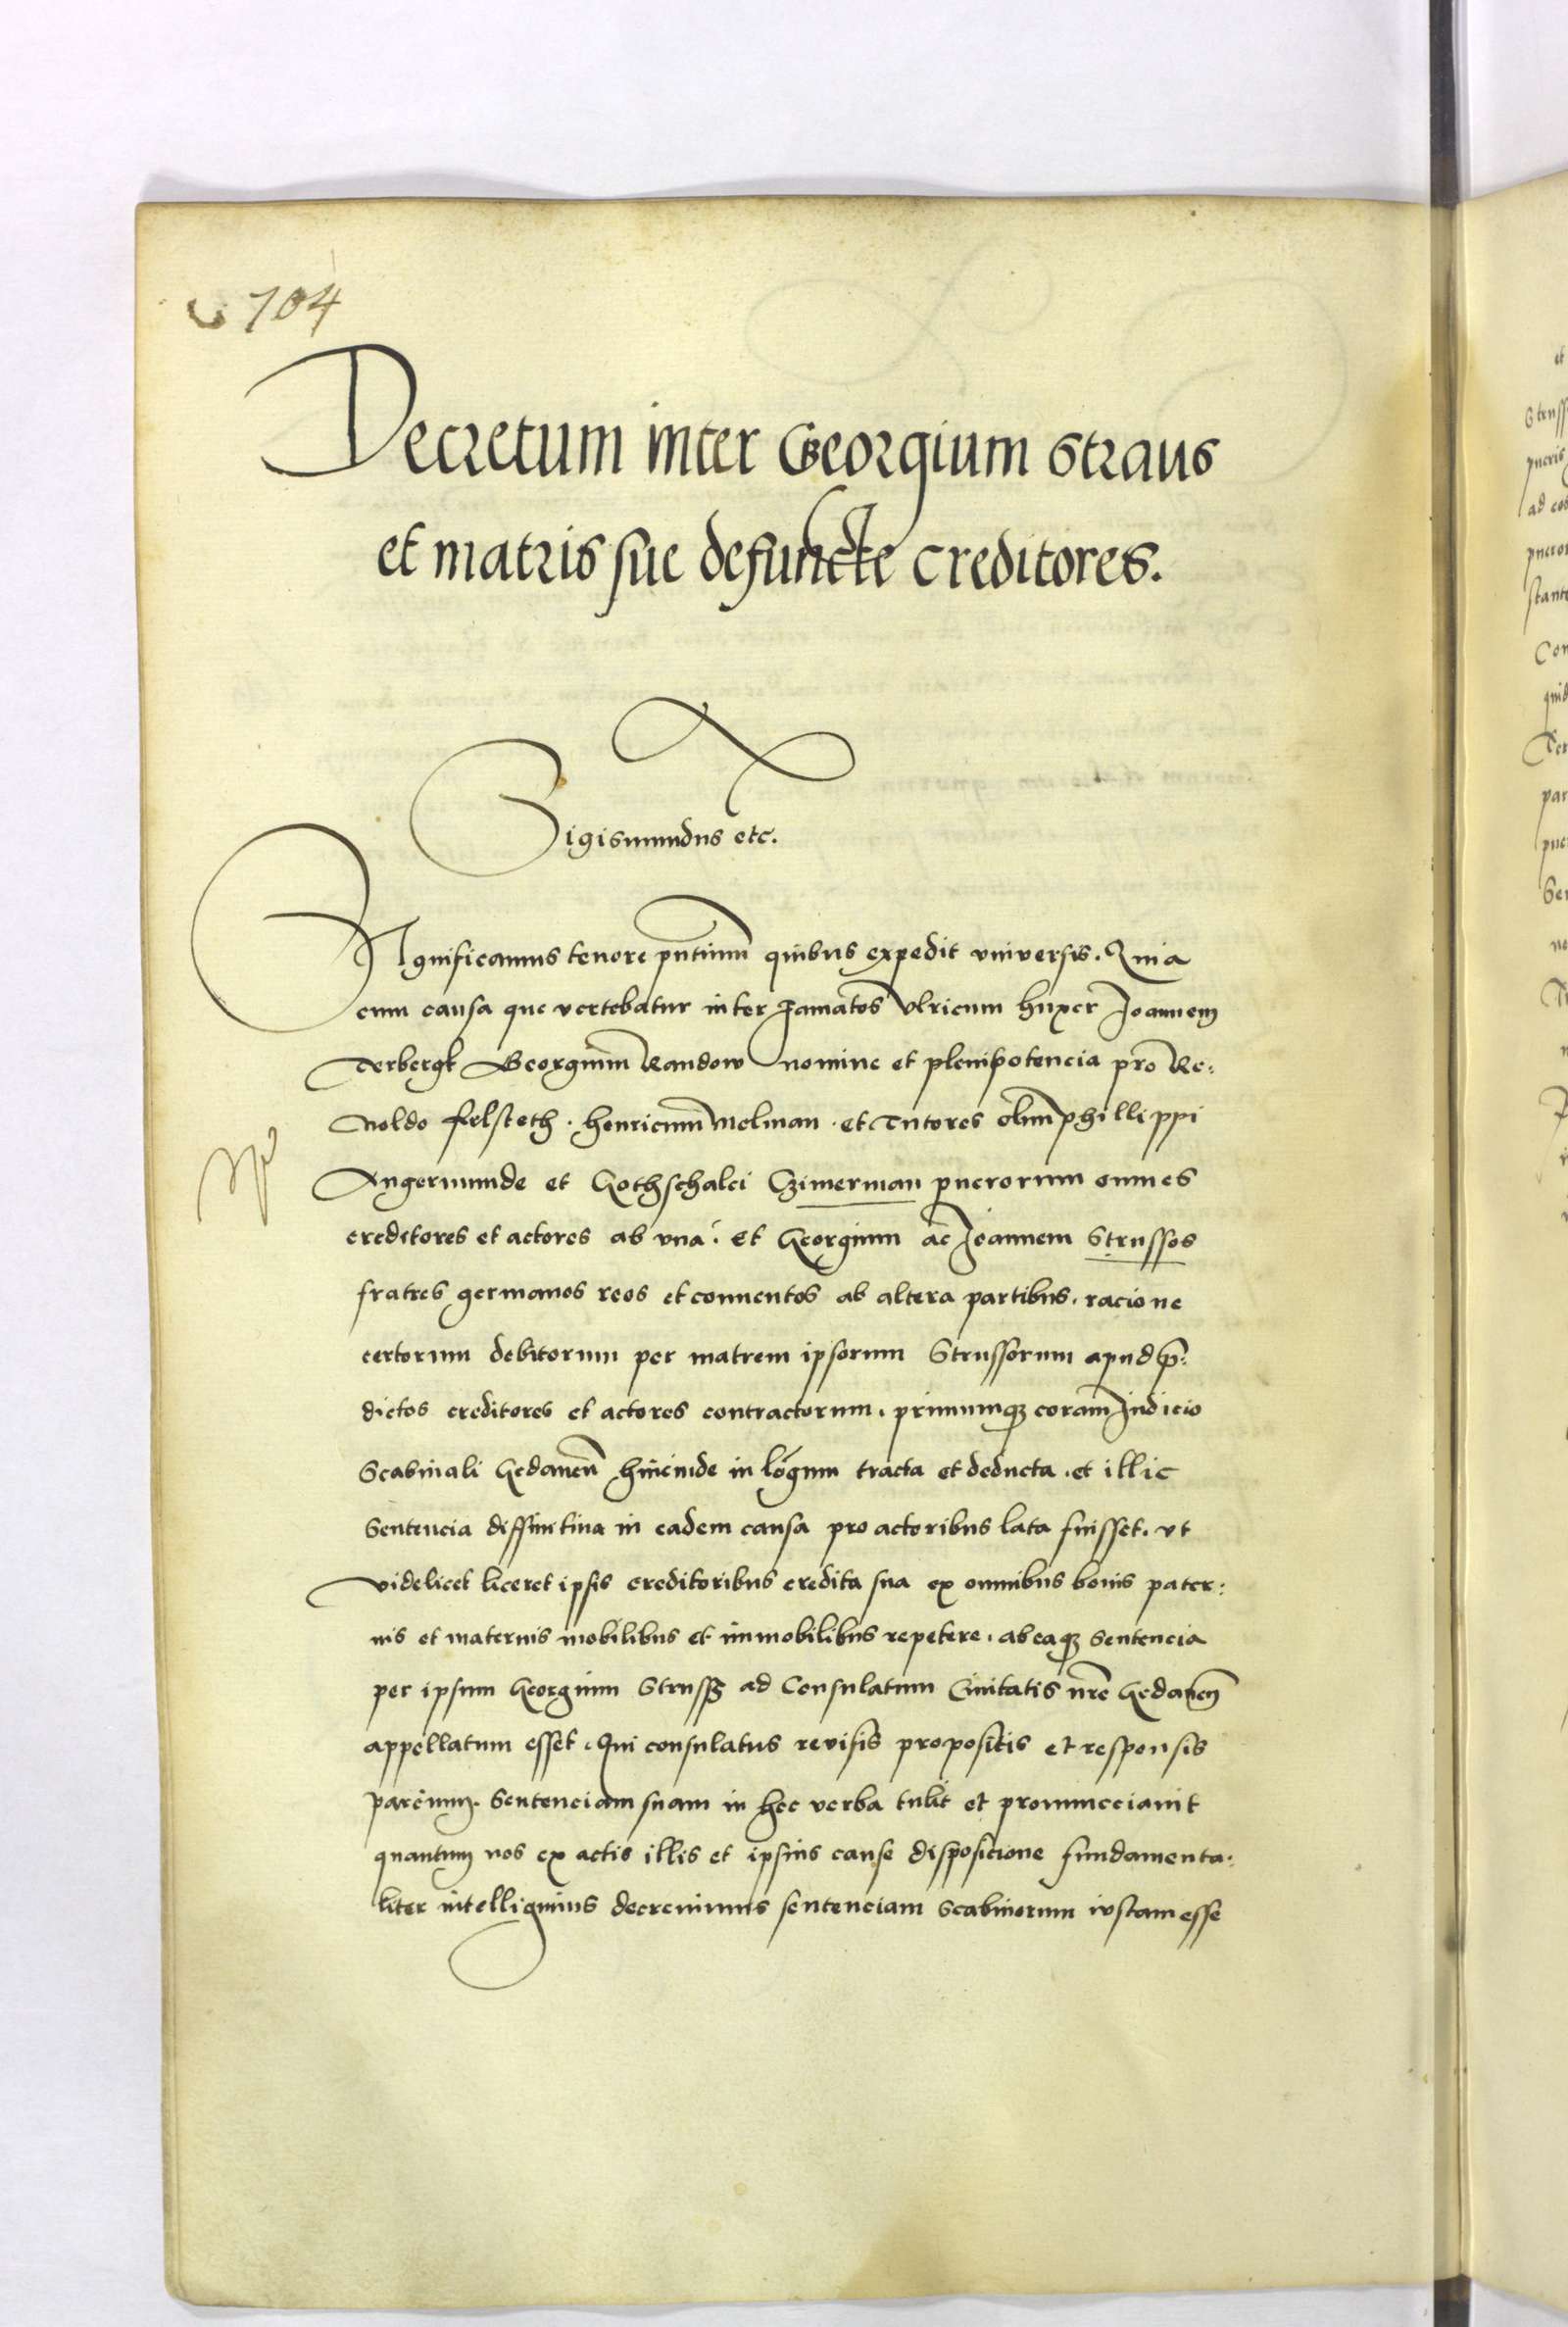 704
Decretum inter Georgium Straus
et matris sue defuncte creditores.
Sigismundus etc.
Significamus tenore pntium quibus expedit vniversis. Quia
cum causa que vertebatur inter famatos Vlricum huxer Joannem
Terbergk Georgium Randow nomine et plenipotencia pro Re:
noldo felsteth. henricum melman. et Tutores olim phillippi
Angermunde et Gothschalci Czimerman puerorum omnes
creditores et actores ab vna. et Georgium ac Joannem Strussos
fratres germanos reos et conuentos ab altera partibus. racione
certorum debitorum per matrem ipsorum Strussorum apud p:
dictos creditores et actores contractorum. primumq coram Judicio
Scabinali Gedanen hincinde in logum tracta et deducta. et illic
Sentencia diffinitiua in eadem causa pro actoribus lata fuisset. vt
videlicet liceret ipsis creditoribus credita sua ex omnibus bonis pater:
nis et maternis mobilibus et immobilibus repetere. ab eaq Sentencia
per ipsum Georgium Struss ad Consulatum Ciuitatis nre Gedanen
appellatum esset. Qui consulatus revisis propositis et responsis
parcium. Sentenciam suam in hec verba tulit et pronuncciauit
quantum nos ex actis illis et ipsius cause disposicione fundamenta:
liter intelligimus decreuimus sentenciam Scabinorum iustam esse